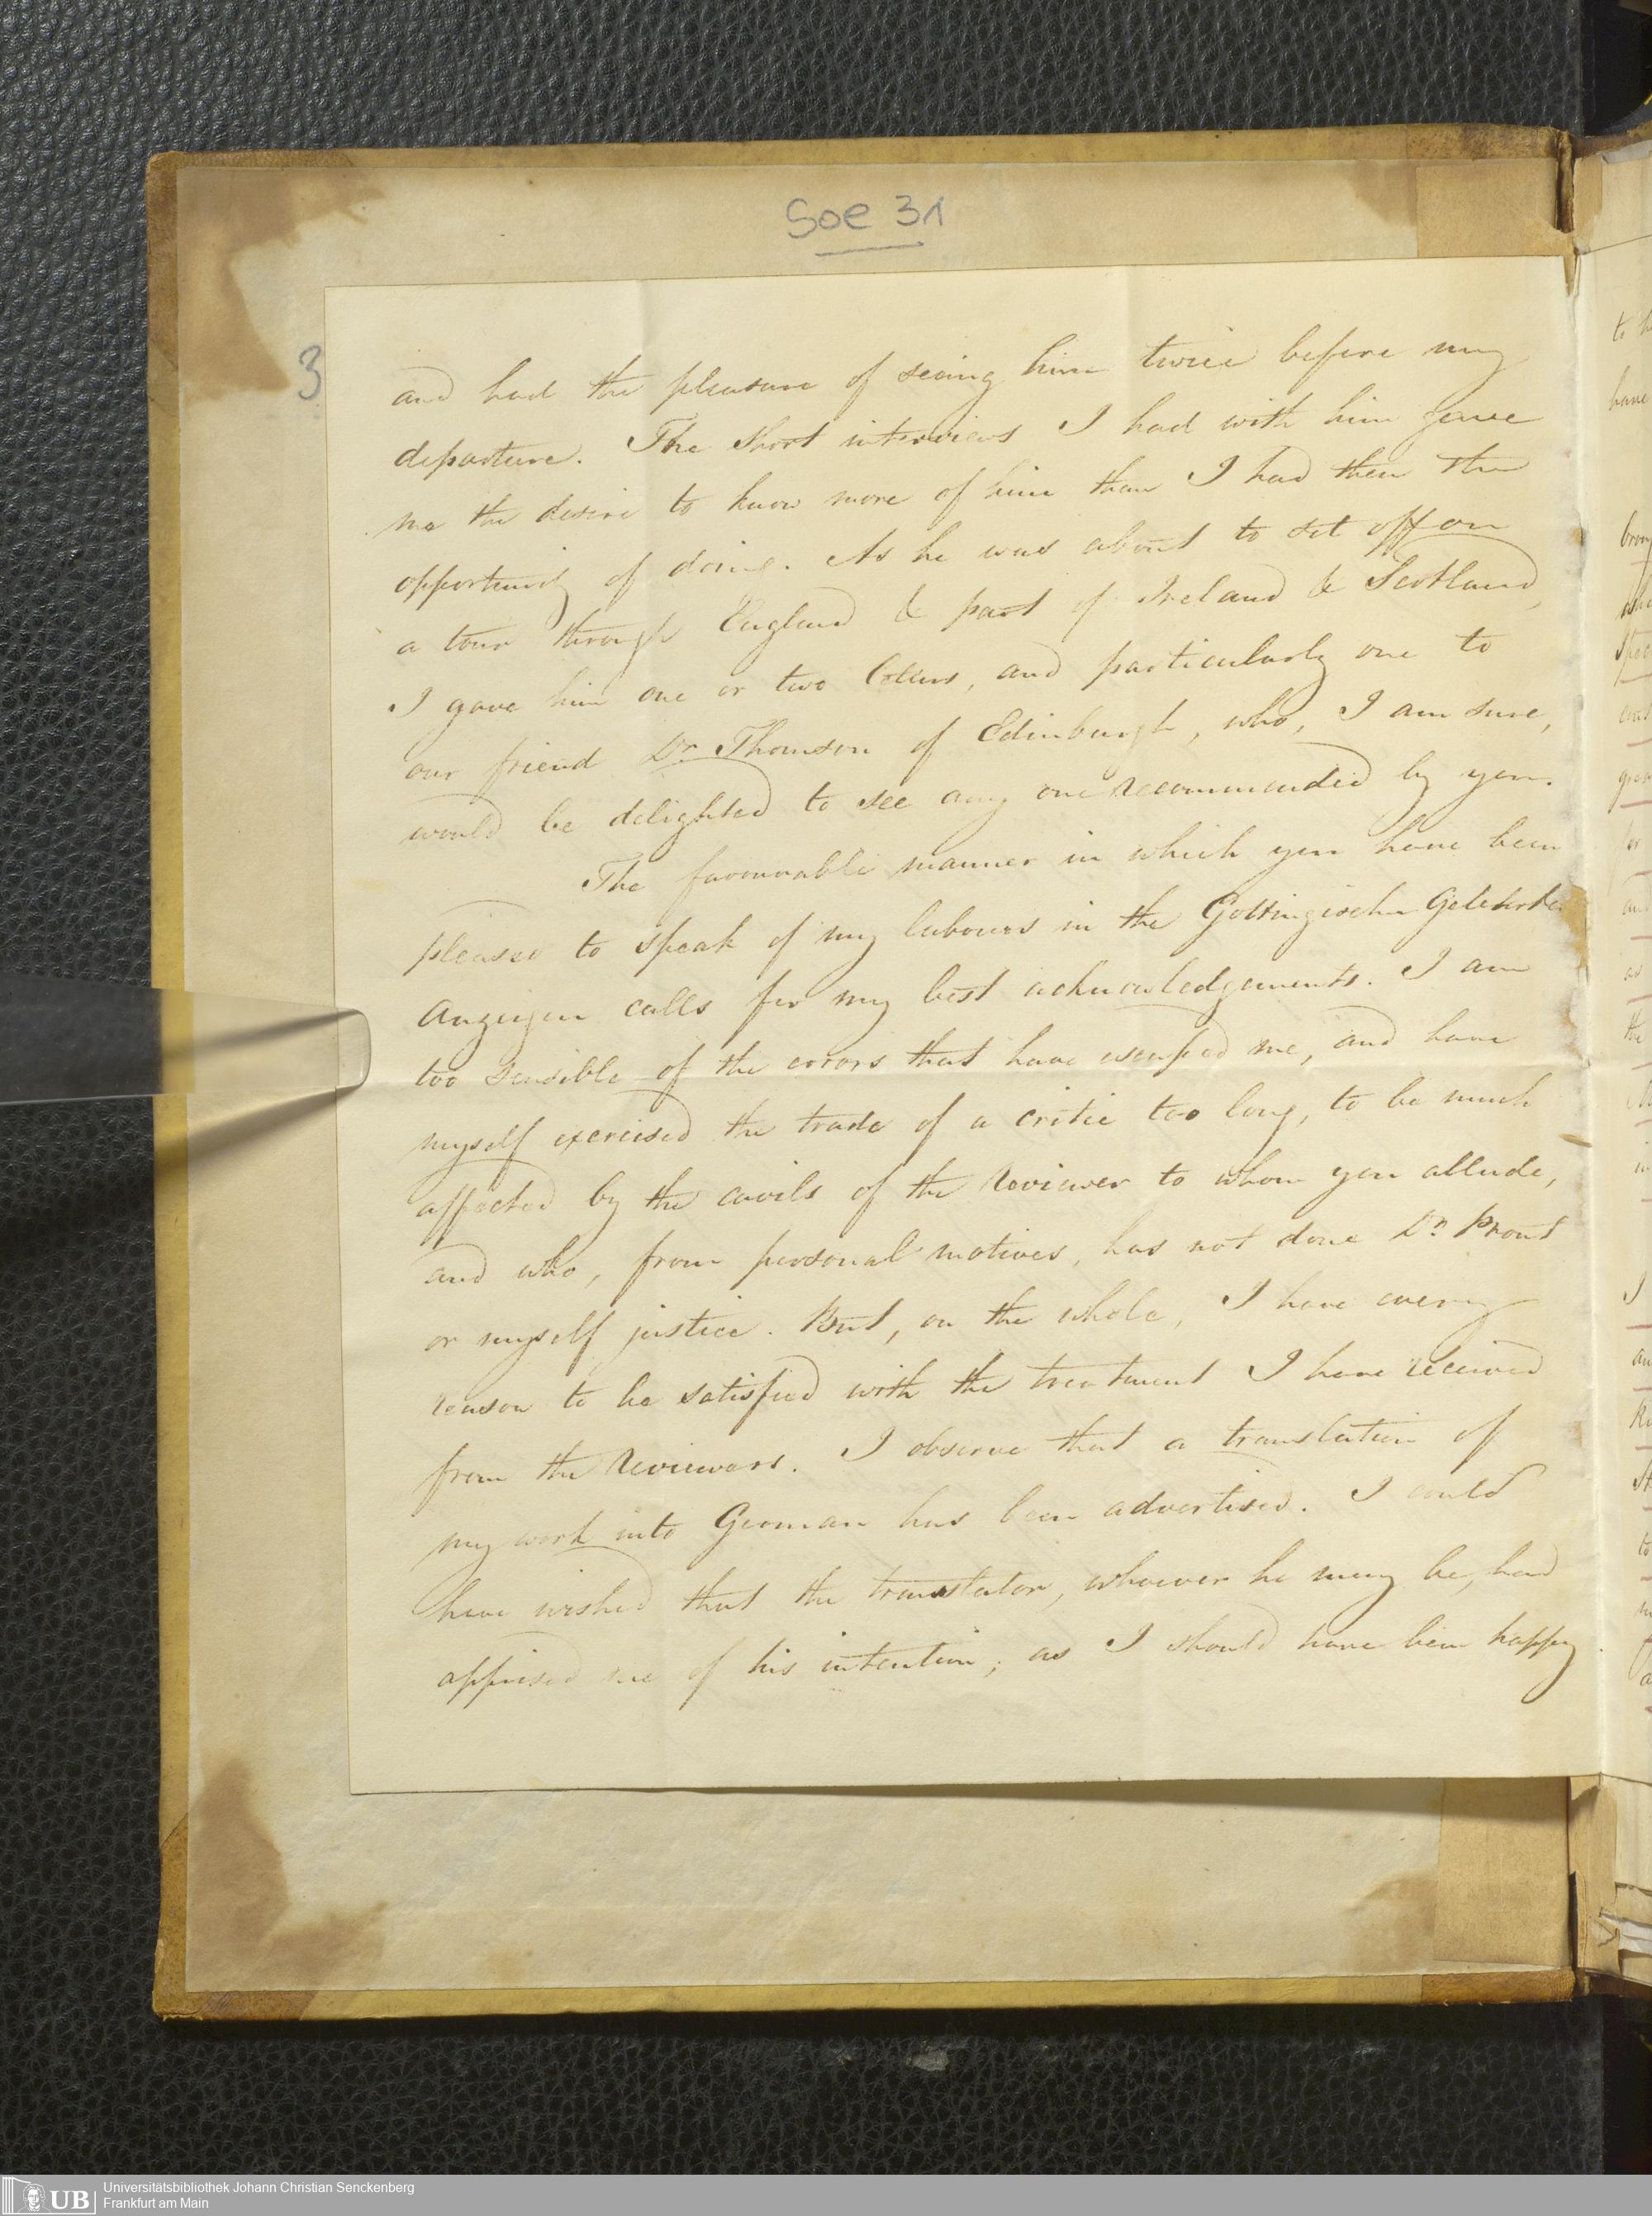 Soe 31
3
and had the pleasure of seeing him twice before my
departure. The short interviews I had with him gave
me the desire to know more of him than I had then the
opportunity of doing. As he was about to set off on
a tour through England & part of Ireland & Scotland,
I gave him one or two letters, and particularly one to
our friend Dr. Thomson of Edinburgh, who, I am sure,
would be delighted to see any one recommended by you.
The favourable manner in which you have been
pleased to speak of my labours in the Gottingischen Gelehrte
Anzeigen calls for my best acknowledgements. I am
too sensible of the errors that have escaped me, and have
myself exercised the trade of a critic too long, to be much
affected by the cavils of the Reviewer to whom you allude,
and who, from personal motives, has not done Dr. Prout
or myself justice. But, on the whole, I have every
reason to be satisfied with the treatment I have received
from the Reviewers. I observe that a translation of
my work into German has been advertised. I could
have wished that the translator, whoever he may be, had
apprised me of his intention; as I should have been happy
to
have
UB Universitätsbibliothek Johann Christian Senckenberg
Frankfurt am Main